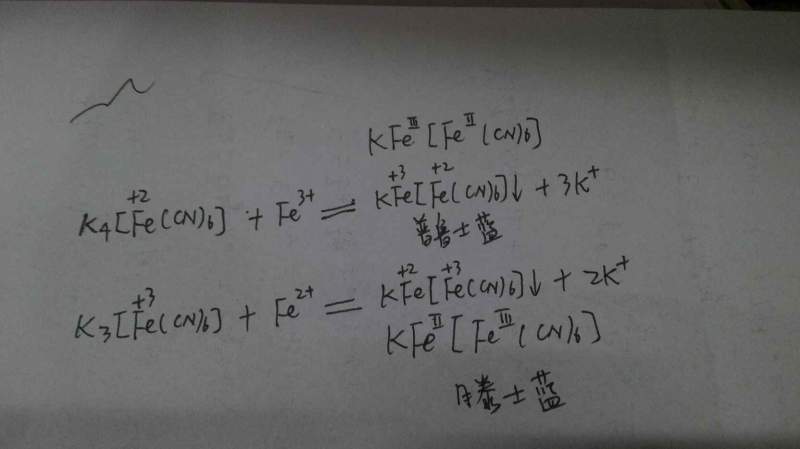 KFeᴵᴵᴵ[Feᴵᴵ(CN)6]
K4[Fe(+2)(CN)6] + Fe³⁺ = KFe(+3)[Fe(+2)(CN)6]↓ + 3K⁺
普鲁士蓝
K3[Fe(+3)(CN)6] + Fe²⁺ = KFe(+2)[Fe(+3)(CN)6]↓ + 2K⁺
KFeᴵᴵ[Feᴵᴵᴵ(CN)6]
滕士蓝